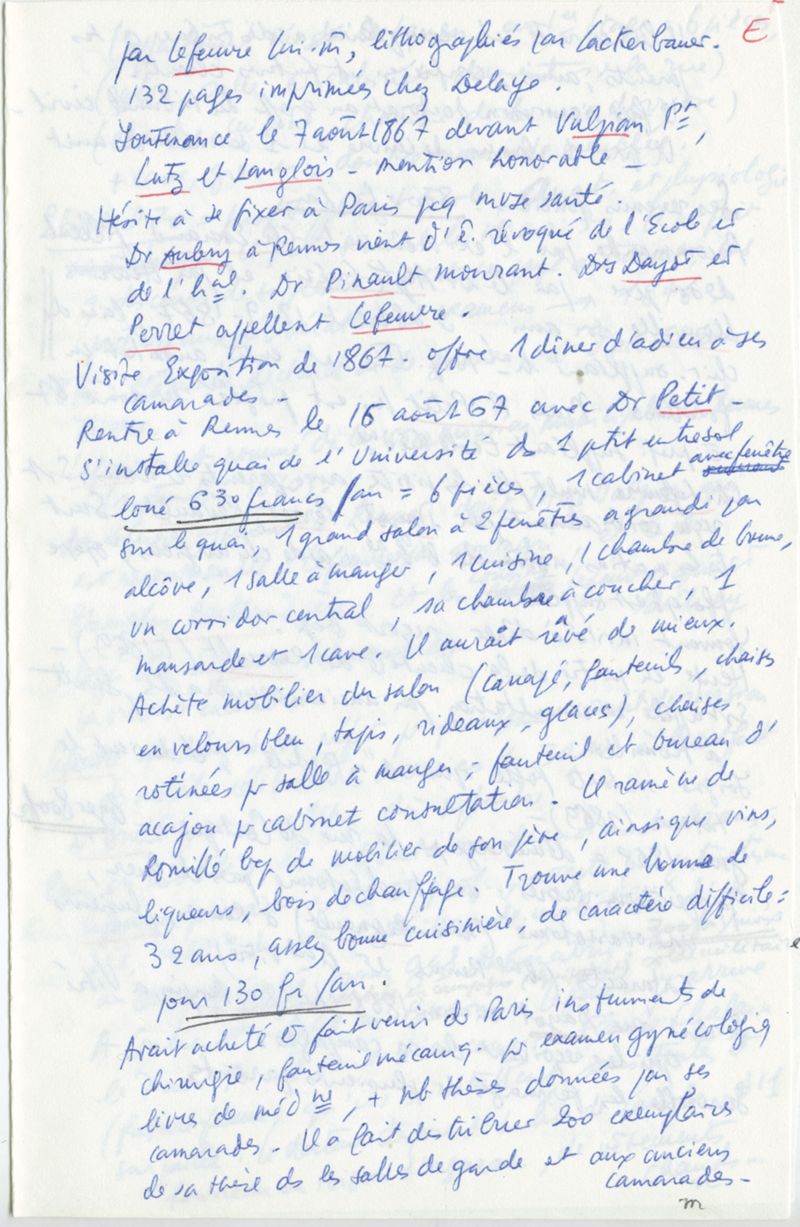 E
par Lefeuvre lui-m̂, lithographiées par Lackerbauer.
132 pages imprimées chez Delaye.
Soutenance le 7 août 1867 devant Vulpian Pt,
Lutz et Langlois - mention honorable -
Hésite à se fixer à Paris pcq mvse santé.
Dr Aubry à Rennes vient d'ê. révoqué de l'Ecole et
de l'hal. Dr Pinault mourant. Drs Dayot et
Perret appellent Lefeuvre.
Visite Exposition de 1867. offre 1 diner d'adieu à ses
camarades -
Rentre à Rennes le 16 août 67 avec Dr Petit -
S'installe quai de l'Université ds 1 ptit entresol
loué 630 francs /an = 6 pièces, 1 cabinet avec fenêtre
sur le quai, 1 grand salon à 2 fenêtres agrandi par
alcôve, 1 salle à manger, 1 cuisine, 1 chambre de bonne,
un corridor central, sa chambre à coucher, 1
mansarde et 1 cave. Il aurait rêvé de mieux.
Achète mobilier du salon (canapé, fauteuils, chaises
en velours bleu, tapis, rideaux, glaces), chaises
rotinées pr salle à manger, - fauteuil et bureau d'
acajou pr cabinet consultation. Il ramène de
Romillé bcp de mobilier de son père, ainsi que vins,
liqueurs, bois de chauffage. Trouve une bonne de
32 ans, assez bonne cuisinière, de caractère difficile =
pour 130 fr /an.
Avait acheté & fait venir de Paris instruments de
chirurgie, fauteuil mécaniq pr examen gynécologiq
livres de médne, + nb thèses données par ses
camarades. Il a fait distribuer 200 exemplaires
de sa thèse ds les salles de garde et aux anciens
camarades -